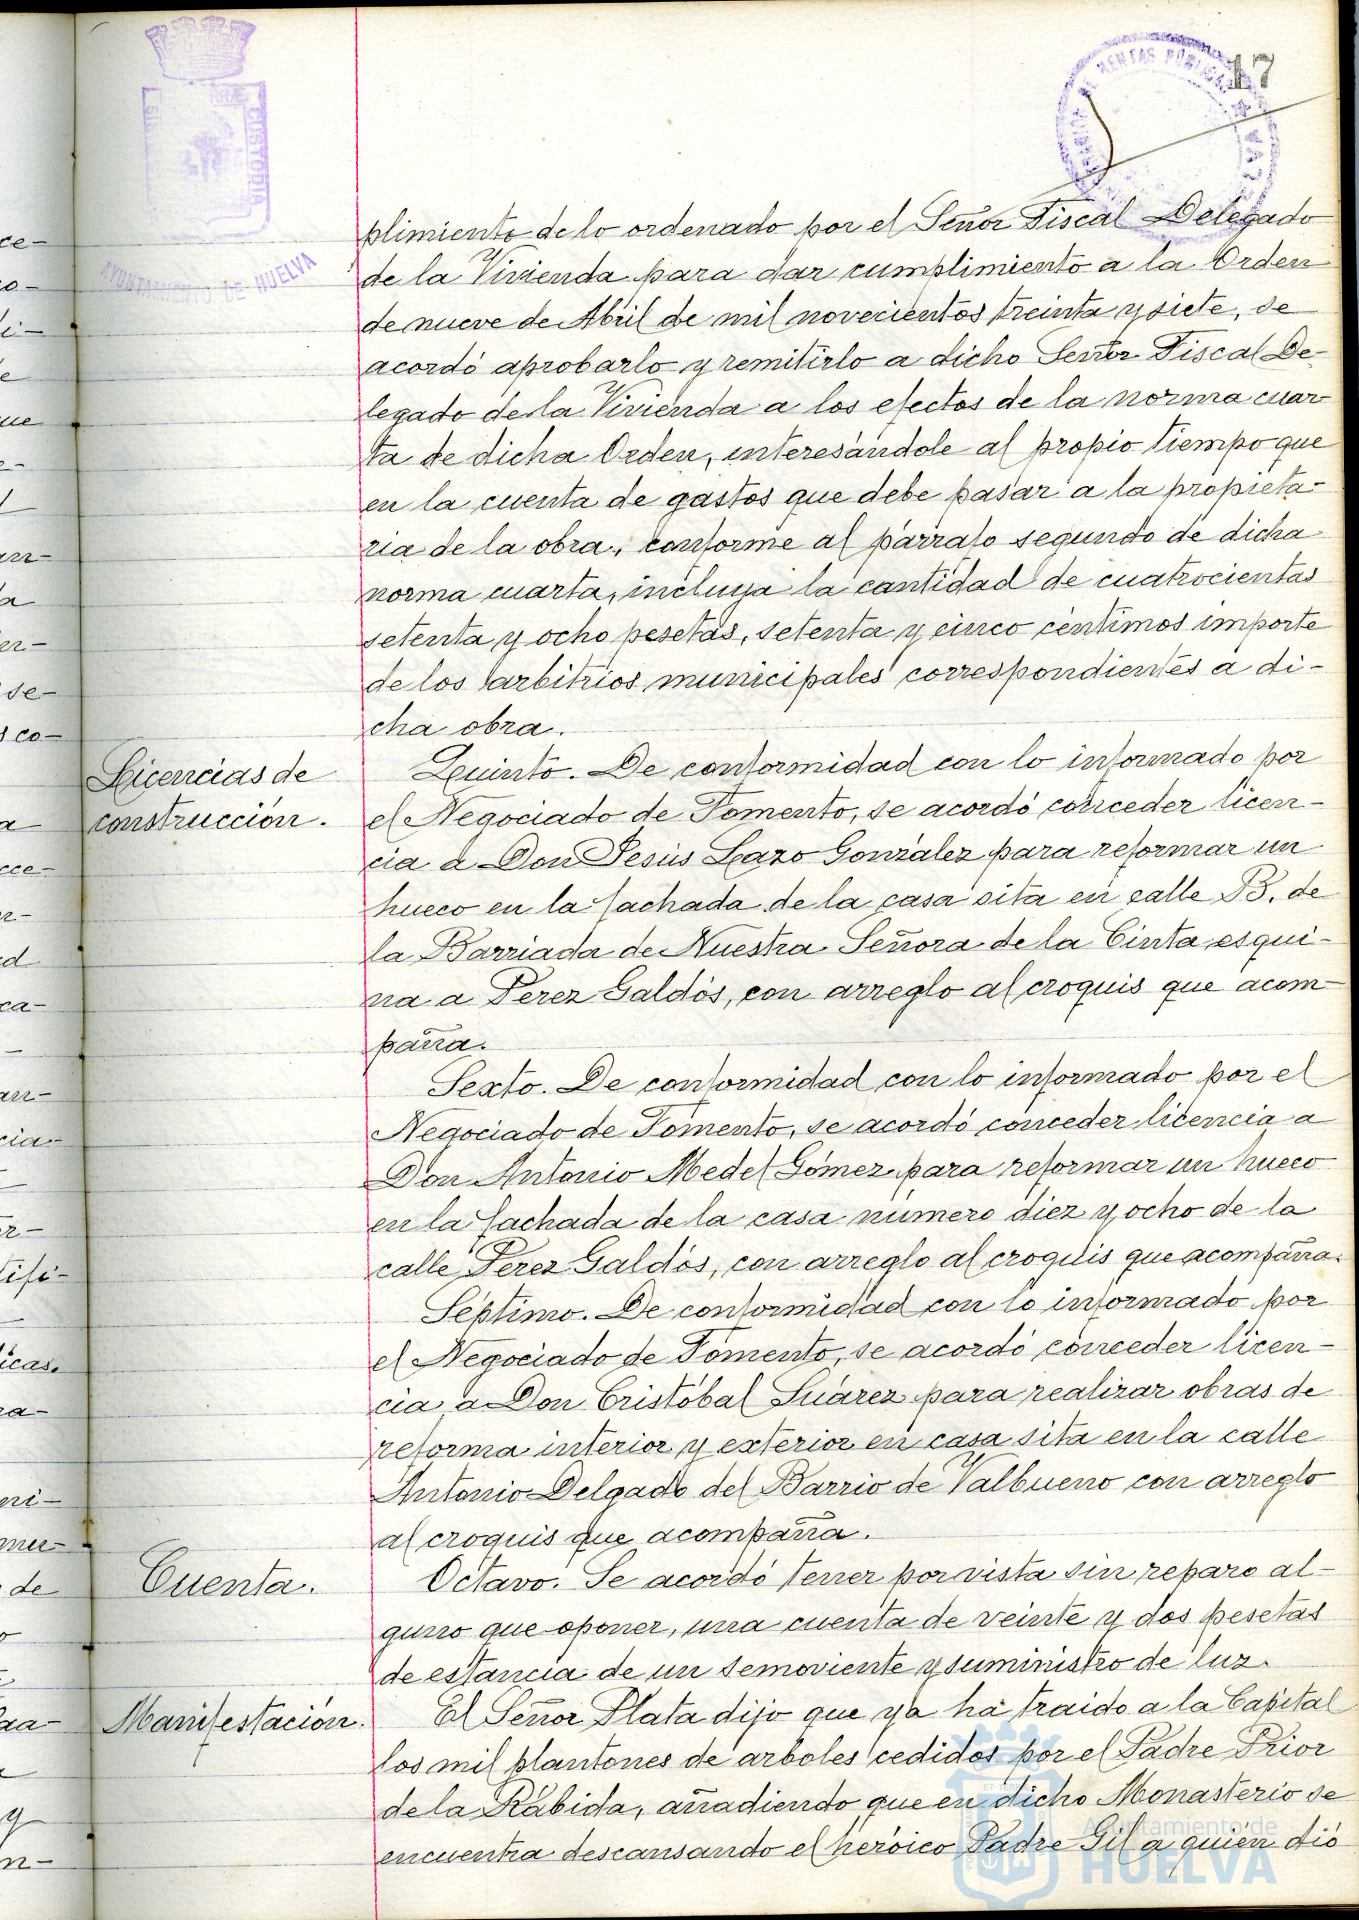 17
AYUNTAMIENTO DE HUELVA
CUSTODIA
RENTAS PÚBLICAS
plimiento de lo ordenado por el Señor Fiscal Delegado
de la Vivienda para dar cumplimiento a la Orden
de nueve de Abril de mil novecientos treinta y siete, se
acordó aprobarlo y remitirlo a dicho Señor Fiscal De-
legado de la Vivienda a los efectos de la norma cuar-
ta de dicha Orden, interesándole al propio tiempo que
en la cuenta de gastos que debe pasar a la propieta-
ria de la obra, conforme al párrafo segundo de dicha
norma cuarta, incluya la cantidad de cuatrocientas
setenta y ocho pesetas, setenta y cinco céntimos importe
de los arbitrios municipales correspondientes a di-
cha obra.
Licencias de
construcción.
Quinto. De conformidad con lo informado por
el Negociado de Fomento, se acordó conceder licen-
cia a Don Jesús Lazo González para reformar un
hueco en la fachada de la casa sita en calle B. de
la Barriada de Nuestra Señora de la Cinta esqui-
na a Perez Galdós, con arreglo al croquis que acom-
paña.
Sexto. De conformidad con lo informado por el
Negociado de Fomento, se acordó conceder licencia a
Don Antonio Medel Gómez para reformar un hueco
en la fachada de la casa número diez y ocho de la
calle Perez Galdós, con arreglo al croquis que acompaña.
Séptimo. De conformidad con lo informado por
el Negociado de Fomento, se acordó conceder licen-
cia a Don Cristóbal Suárez para realizar obras de
reforma interior y exterior en casa sita en la calle
Antonio Delgado del Barrio de Valbueno con arreglo
al croquis que acompaña.
Cuenta.
Octavo. Se acordó tener por vista sin reparo al-
guno que oponer, una cuenta de veinte y dos pesetas
de estancia de un semoviente y suministro de luz.
Manifestación.
El Señor Plata dijo que ya ha traido a la Capital
los mil plantones de arboles cedidos por el Padre Prior
de la Rábida, añadiendo que en dicho Monasterio se
encuentra descansando el heróico Padre Gil a quien dió
Ayuntamiento de
HUELVA